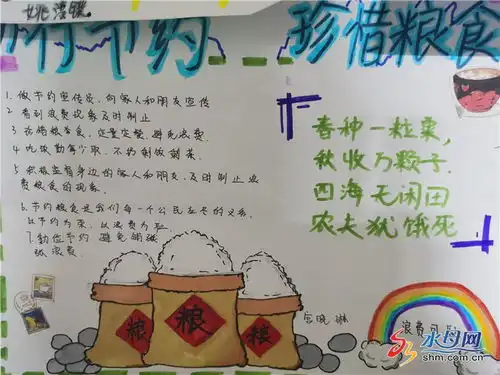 行节约 珍惜粮食
1. 做节约宣传员，向家人和朋友宣传
2. 看到浪费现象及时制止
3. 珍惜粮食，定量定餐，避免浪费
4. 吃饭勤拿少取，不扔剩饭剩菜。
5. 积极监督身边的家人和朋友，及时制止浪
费粮食的现象。
6. 节约粮食是我们每一个公民应尽的义务，
以节约为荣，以浪费为耻
7. 勤俭节约 避免铺张
浪费
春种一粒粟，
秋收万颗子.
四海无闲田
农夫犹饿死
粮
粮
粮
浪费可耻
水母网
shm.com.cn